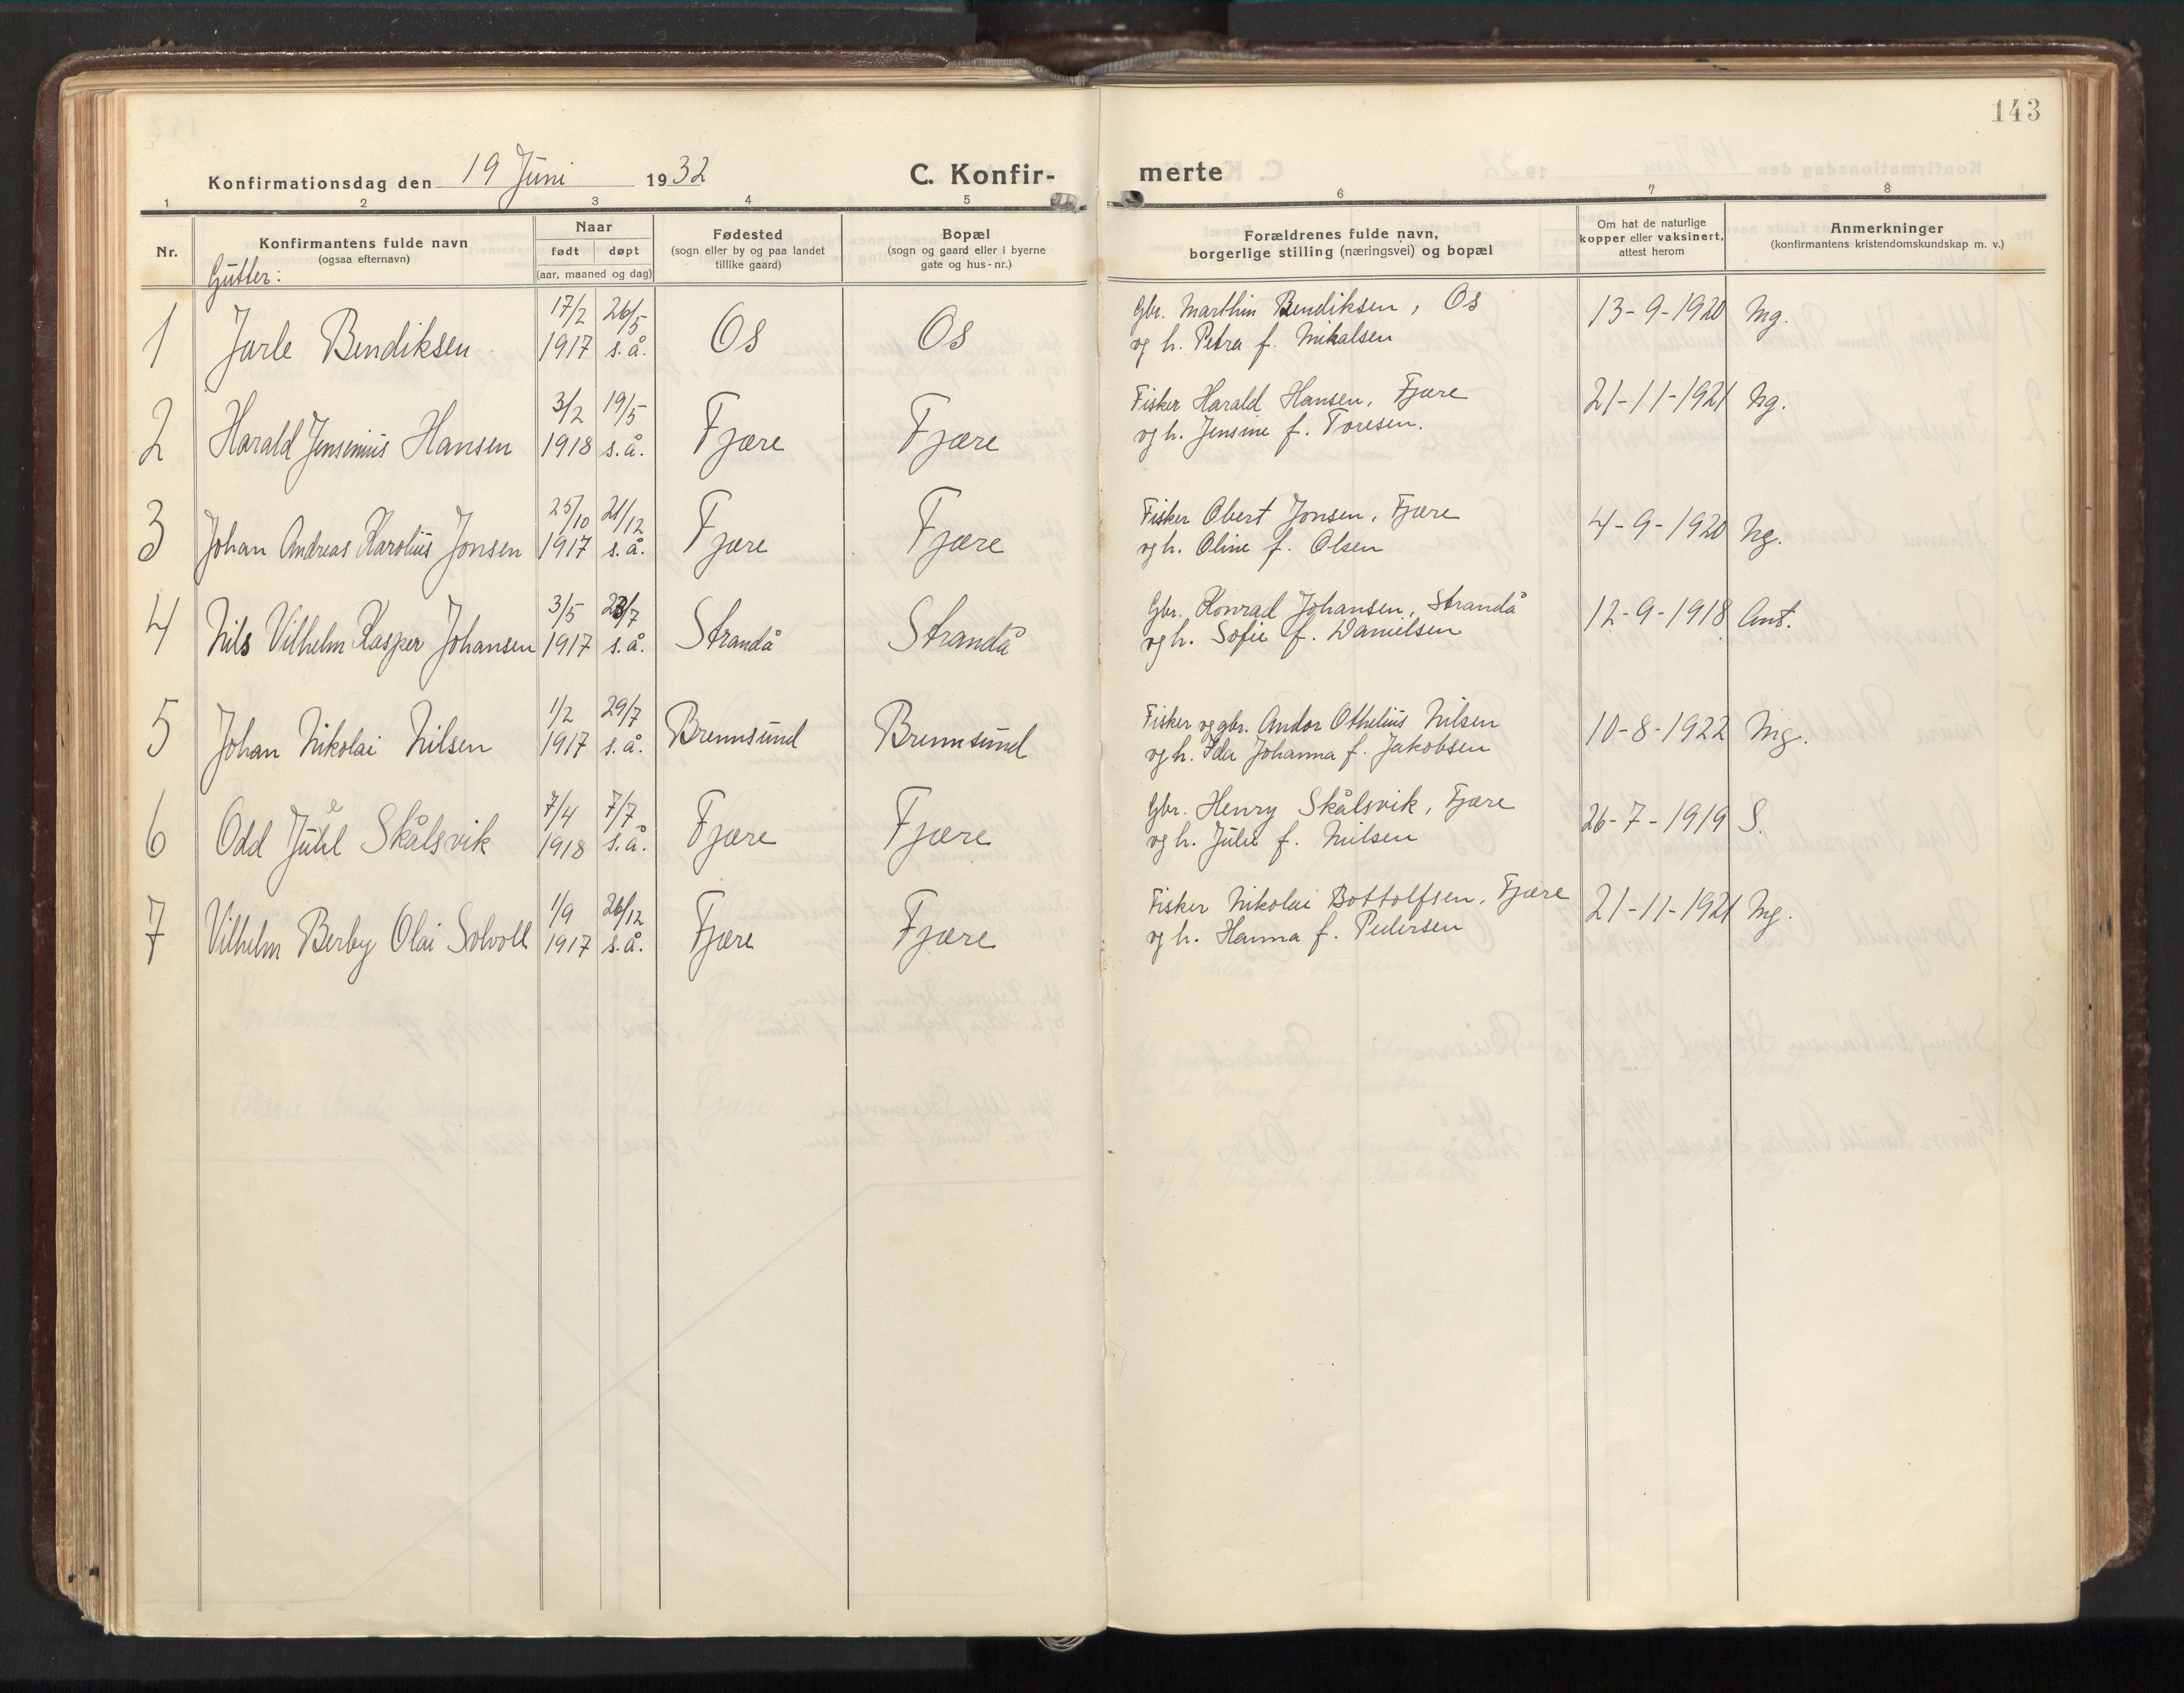 143
Konfirmationsdag den 19 Juni 1932 C. Konfir- merte
1 2 3 4 5 6 7 8
Nr. Konfirmantens fulde navn (ogsaa efternavn) Naar født døpt (aar, maaned og dag) Fødested (sogn eller by og paa landet tillike gaard) Bopæl (sogn og gaard eller i byerne gate og hus-nr.) Forældrenes fulde navn, borgerlige stilling (næringsvei) og bopæl Om hat de naturlige kopper eller vaksinert, attest herom Anmerkninger (konfirmantens kristendomskundskap m. v.)
Gutter:
17/2 26/5 Gbr. Marthin Bendiksen, Os 13-9-1920 Mg.
1 Jarle Bendiksen 1917 s.å. Os Os og h. Petra f. Mikalsen
3/2 19/5 Fisker Harald Hansen, Fjære 21-11-1921 Ng.
2 Harald Jensenius Hansen 1918 s.å. Fjære Fjære og h. Jensine f. Toresen.
25/10 21/12 Fisker Obert Jonsen, Fjære 4-9-1920 Ng.
3 Johan Andreas Karolius Jonsen 1917 s.å. Fjære Fjære og h. Oline f. Olsen
3/5 /7 Gbr. Konrad Johansen, Strandå 12-9-1918
4 Nils Vilhelm Kasper Johansen 1917 s.å. Strandå Strandå og h. Sofie f. Danielsen
1/2 29/7 Fisker og gbr. Andor Othelius Nilsen 10-8-1922 Mg.
5 Johan Nikolai Nilsen 1917 s.å. Brennsund Brennsund og h. Ida Johanna f. Jakobsen
7/4 7/7 Gbr. Henry Skålsvik, Fjære 26-7-1919 S.
6 Odd Skålsvik 1918 s.å. Fjære Fjære og h. Julie f. Nilsen
1/9 26/12 Fisker Nikolai Bottolfsen, Fjære 21-11-1921 Mg.
7 Vilhelm Berby Olai Solvoll 1917 s.å. Fjære Fjære og h. Hanna f. Pedersen